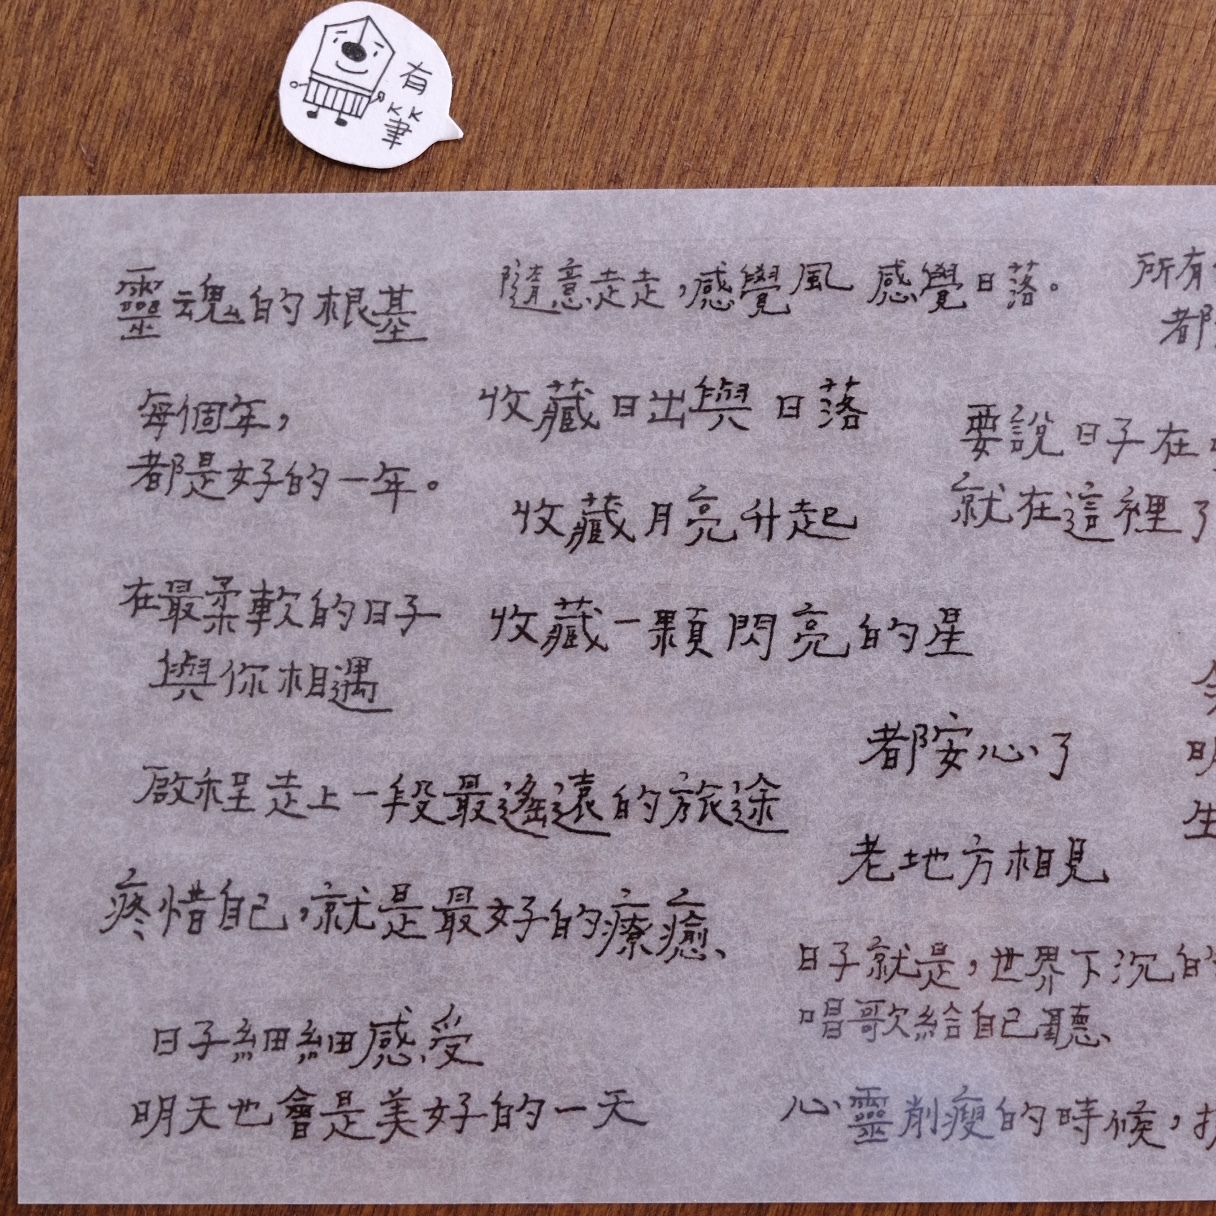 有
筆
靈魂的根基
每個年,
都是好的一年。
在最柔軟的日子
與你相遇
啟程走上一段最遙遠的旅途
疼惜自己,就是最好的療癒、
日子細細感受
明天也會是美好的一天
隨意走走,感覺風 感覺日落。
收藏日出與日落
收藏月亮升起
收藏一顆閃亮的星
都安心了
老地方相見
日子就是,世界下沉的
唱歌給自己聽、
心靈削瘦的時候,
所有
都
要說日子在
就在這裡了
生